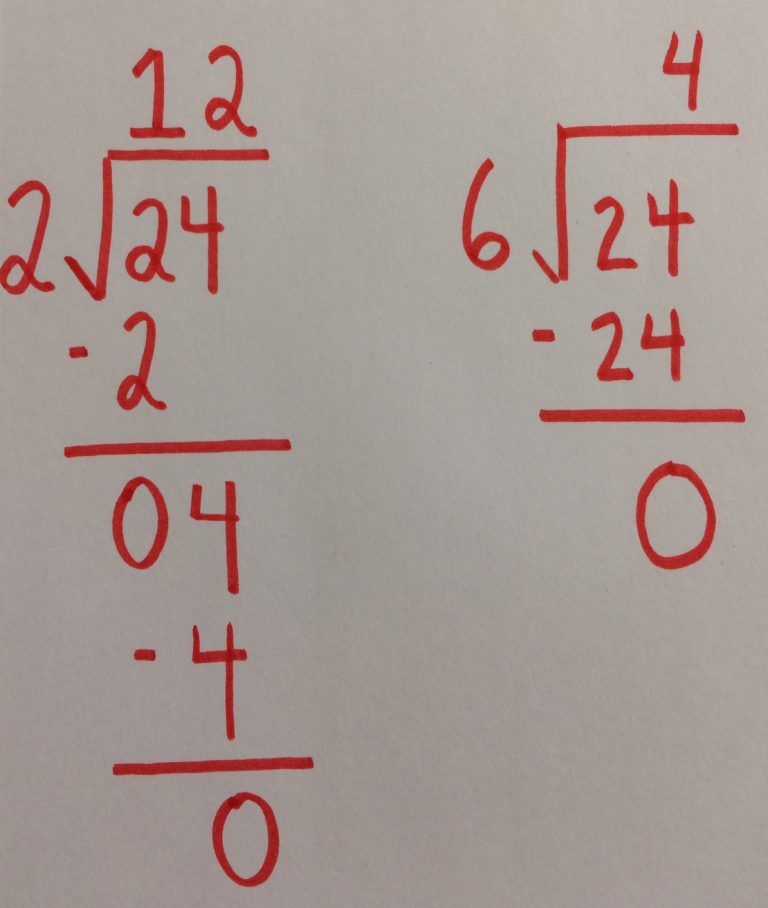 12
2√24
- 2
04
- 4
0
4
6√24
- 24
0